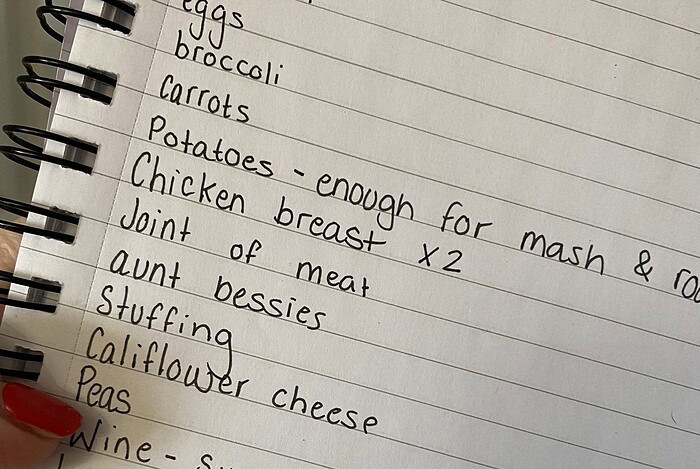 eggs
broccoli
Carrots
Potatoes - enough for mash &
Chicken breast x2
Joint of meat
aunt bessies
Stuffing
Califlower cheese
Peas
Wine -